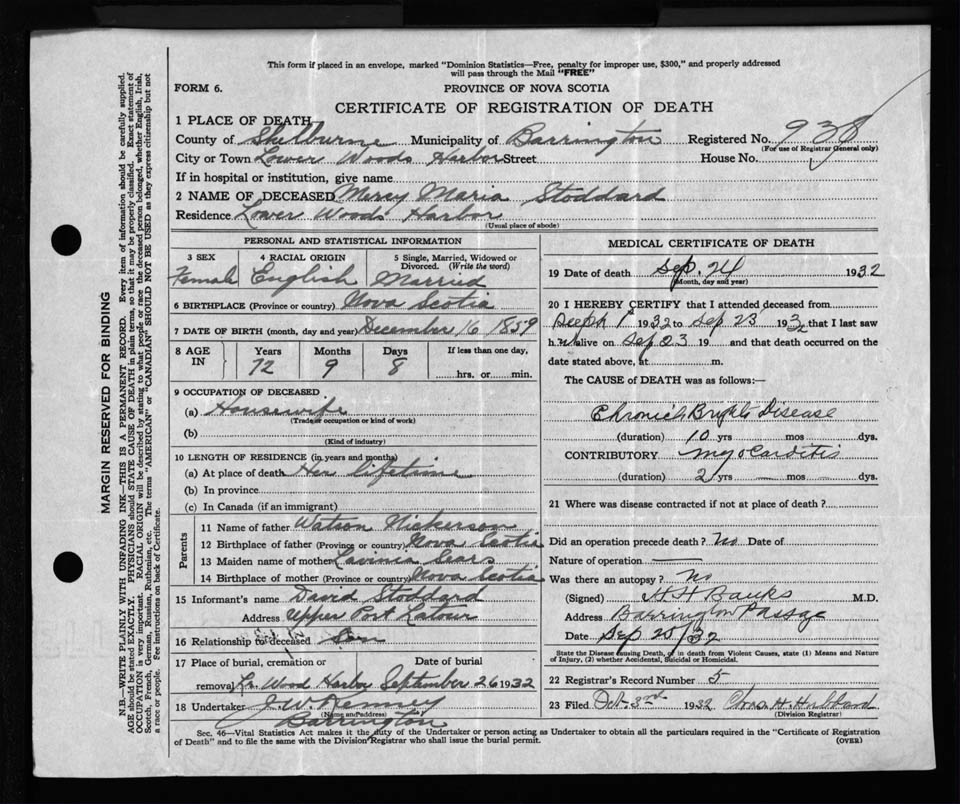 This form if placed in an envelope, marked "Dominion Statistics—Free, penalty for improper use, $300," and properly addressed
will pass through the Mail "FREE"
FORM 6.
PROVINCE OF NOVA SCOTIA
CERTIFICATE OF REGISTRATION OF DEATH
1 PLACE OF DEATH
County of Shelburne Municipality of Barrington Registered No. 938
(For use of Registrar General only)
City or Town Lower Woods Harbor Street House No.
If in hospital or institution, give name
2 NAME OF DECEASED Mercy Maria Stoddard
Residence Lower Woods Harbor
(Usual place of abode)
PERSONAL AND STATISTICAL INFORMATION
3 SEX 4 RACIAL ORIGIN 5 Single, Married, Widowed or
Divorced. (Write the word)
Female English Married
6 BIRTHPLACE (Province or country) Nova Scotia
7 DATE OF BIRTH (month, day and year) December 16 1859
8 AGE IN Years Months Days If less than one day,
72 9 8 hrs. or min.
9 OCCUPATION OF DECEASED
(a) Housewife
(Trade or occupation or kind of work)
(b)
(Kind of industry)
10 LENGTH OF RESIDENCE (in years and months)
(a) At place of death Her lifetime
(b) In province
(c) In Canada (if an immigrant)
Parents
11 Name of father Watson Nickerson
12 Birthplace of father (Province or country) Nova Scotia
13 Maiden name of mother Lavinia Sears
14 Birthplace of mother (Province or country) Nova Scotia
15 Informant's name David Stoddard
Address Upper Port Latour
16 Relationship to deceased Son
17 Place of burial, cremation or Date of burial
removal Lr. Wood Harbor September 26 1932
18 Undertaker J. W. Kenney
(Name and Address)
Barrington
MEDICAL CERTIFICATE OF DEATH
19 Date of death Sep. 24 1932
(Month, day and year)
20 I HEREBY CERTIFY that I attended deceased from
1st 1932 to Sep 23, 1932 that I last saw
h er alive on Sep 23 19 and that death occurred on the
date stated above, at m.
The CAUSE of DEATH was as follows:—
Chronic Brights Disease
(duration) 10 yrs mos dys.
CONTRIBUTORY Myocarditis
(duration) 2 yrs — mos — dys.
21 Where was disease contracted if not at place of death?
Did an operation precede death? No Date of
Nature of operation —
Was there an autopsy? No
(Signed) H H Banks M.D.
Address Barrington Passage
Date Sep 25/32
State the Disease causing Death, or in death from Violent Causes, state (1) Means and Nature
of Injury, (2) whether Accidental, Suicidal or Homicidal.
22 Registrar's Record Number 5
23 Filed Oct. 3rd 1932 Chas. H. Hubbard
(Division Registrar)
Sec. 46—Vital Statistics Act makes it the duty of the Undertaker or person acting as Undertaker to obtain all the particulars required in the "Certificate of Registration
of Death" and to file the same with the Division Registrar who shall issue the burial permit. (OVER)
MARGIN RESERVED FOR BINDING
N.B.—WRITE PLAINLY WITH UNFADING INK—THIS IS A PERMANENT RECORD. Every item of information should be carefully supplied.
AGE should be stated EXACTLY. PHYSICIANS should STATE CAUSE OF DEATH in plain terms, so that it may be properly classified. Exact statement of
OCCUPATION is very important. RACIAL ORIGIN will be described by stating to what people or race the deceased person belonged, whether English, Irish,
Scotch, French, German, Russian, Ruthenian, etc. The terms "AMERICAN" or "CANADIAN" SHOULD NOT BE USED as they express citizenship but not
a race or people. Fee instructions on back of Certificate.